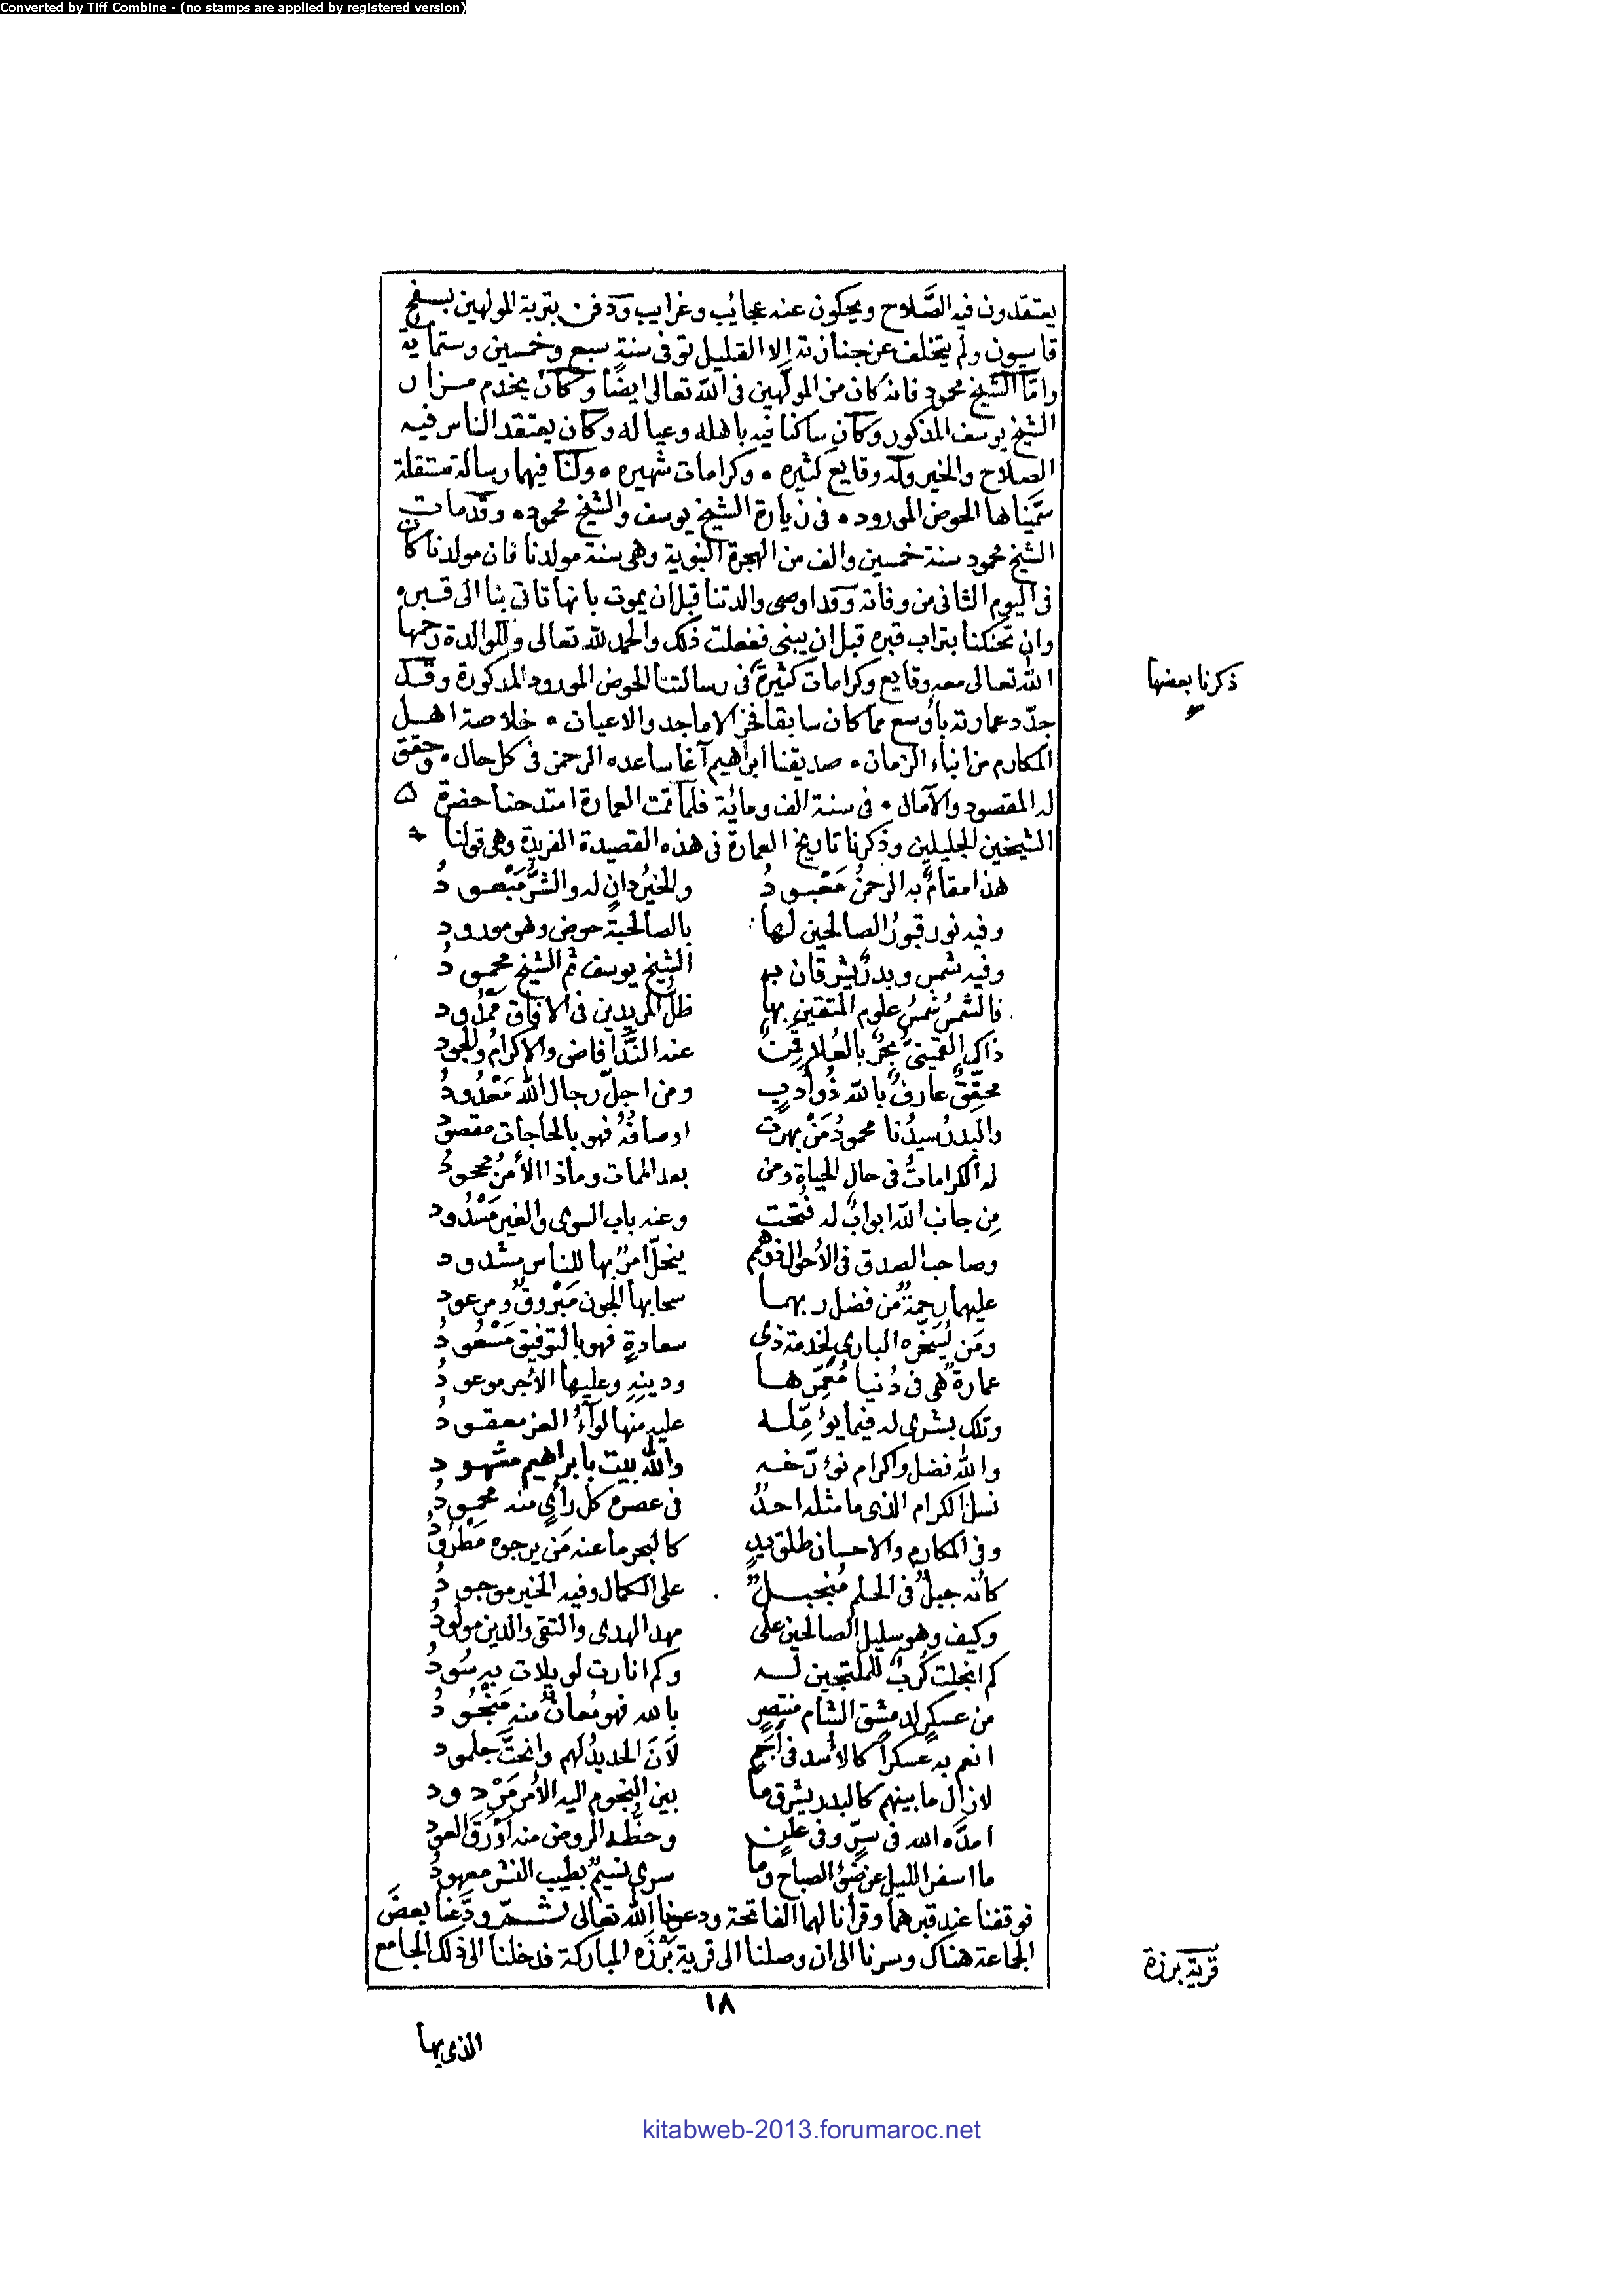 Converted by Tiff Combine - (no stamps are applied by registered version)
يعتقدون فيه الصَّلاح ويحكون عنه عجائب وغرايب ودفن بتربة المولهين بسفح
قاسيون ولم يتخلف عن جنازته إلا القليل توفى سنة سبع وخمسين وستماية
وامّا الشيخ محمود فانه كان من المولهين فى الله تعالى ايضا وكان يخدم مزار
الشيخ يوسف المذكور وكان ساكنا فيه باهله وعياله وكان يعتقد الناس فيه
الصلاح والخير وله وقايع كثيره • وكرامات شهيره • ولنا فيهما رسالة مستقلة
سمّيناها الحوض المورود • فى زيارة الشيخ يوسف والشيخ محمود • وقد مات
الشيخ محمود سنة خمسين والف من الهجرة النبوية وهى سنة مولدنا فان مولدنا كان
فى اليوم الثانى من وفاته وقد اوصى والدتنا قبل ان يموت بانها تاتى بنا الى قبره
وان تحنكنا بتراب قبره قبل ان يبنى ففعلت ذلك والحمد لله تعالى وللوالدة رحمها
الله تعالى معه وقايع وكرامات كثيرة فى رسالتنا الحوض المورود المذكورة وقد
ذكرنا بعضها
جدّد عمارته بأوسع مما كان سابقا فخر الاماجد والاعيان • خلاصة اهل
المكارم من ابناء الزمان • صديقنا ابراهيم آغا ساعده الرحمن فى كل حال • وحقق
له المقصود والآمال • فى سنة الف ومائة فلما تمت العمارة امتدحنا حضرة
الشيخين الجليلين وذكرنا تاريخ العمارة فى هذه القصيدة الفريدة وهى قولنا
هذا مقامٌ به الرحمنُ مَعْبودُ والخيرُ دانٍ له والشرُّ مَبْعودُ
وفيه نور قبورُ الصالحين لها بالصالحية حوض وهو مورود
وفيه شمس وبدرٌ يشرقان به الشيخ يوسف ثم الشيخ محمودُ
فالشمسُ شمسُ علوم المتقين بها ظلُّ المريدين فى الافاق مَمْدُود
ذاك القمينىُّ بحرٌ بالعُلا قَمِنٌ عند النَّدا فاض والاكرامُ والجود
محقِّقٌ عارفٌ بالله ذُو أدبٍ ومن اجلّ رجال الله مَعْدُودُ
والبدرُ سيدُنا محمودُ مَنْ بهرت اوصافُهُ فهو بالحاجات مقصودُ
له الكراماتُ فى حال الحياة ومن بعد الممات وماذا الأمنُ مجحودُ
مِن جانب الله ابوابٌ له فُتحت وعنه باب السوى والغير مَسْدُود
وصاحب الصدق فى الأحوال ينحلّ امرٌ بها للناس مشدود
عليهما رحمةٌ من فضل ربهما سحابها الجون مَبْروقٌ ومرعود
ومَن يُسَخّره البارى لخدمة ذى سعادةٍ فهو بالتوفيق مَسْعُودُ
عمارةٌ هى فى دُنيا مُعَمِّرها ودينِهِ وعليها الأجر موعودُ
وتلك بشرى له فيما يؤمِّله عليه منها لوآءُ العز معقودُ
والله فضل واكرام نؤرّخه والله بيت بابراهيم مشهود
نسل الكرام الذى ما مثله احدٌ فى عصره كل رأيٍ منه محمودُ
وفى المكارم والاحسان طلق يدٍ كالبحر ما عنه مَن يرجوه مَطْرُودُ
كأنه جبلٌ فى الحلم مُنجبلٌ على الكمال وفيه الخير موجودُ
وكيف وهو سليل الصالحين على مهد الهدى والتقى والدين مولودُ
كم انجلت كُربٌ للملتجين له وكم انارت لويلات به سُودُ
من عسكرٍ لدمشق الشام منتصرٍ بالله فهو مُعانٌ منه مَنْجُودُ
انعم به عسكراً كالأُسد فى أَجَمٍ لَانَ الحديدُ لهم وانحتَّ جلمود
لازال ما بينهم كالبدر يشرق ما بين النجوم اليه الأمر مَرْدود
امدّه الله فى سِرٍّ وفى علنٍ وحظّه الروض منه أَوْرَقَ العود
ما اسفر الليل عن ضوْء الصباح وما سرى نسيمٌ بطيب النشر معهودُ
فوقفنا عند قبرهما وقرأنا لهما الفاتحة ودعونا الله تعالى ثم ودَّعَنا بعضُ
الجماعة هناك وسرنا الى ان وصلنا الى قرية بَرْزَه المباركة فدخلنا الى ذلك الجامع
قرية برزة
١٨
الذى بها
kitabweb-2013.forumaroc.net